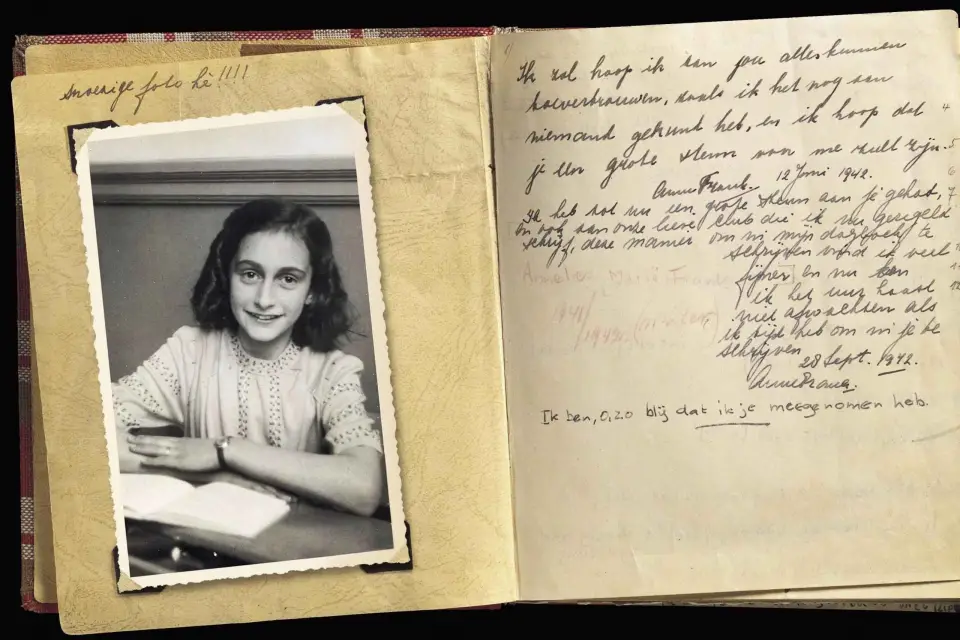 snoezige foto hè!!!!
Ik zal hoop ik aan jou alles kunnen
toevertrouwen, zoals ik het nog aan
niemand gekund heb, en ik hoop dat
je een grote steun van me zult zijn.
Anne Frank. 12 Juni 1942.
Ik heb tot nu een grote steun aan je gehad,
en ook aan onze lieve club die ik nu geregeld
schrijf, deze manier om in mijn dagboek te
schrijven vind ik veel
fijner en nu kan
ik het uur haast
niet afwachten als
ik tijd heb om in je te
schrijven
28 Sept. 1942.
Anne Frank.
Ik ben, o, zo blij dat ik je meegenomen heb.
4
5
6
7